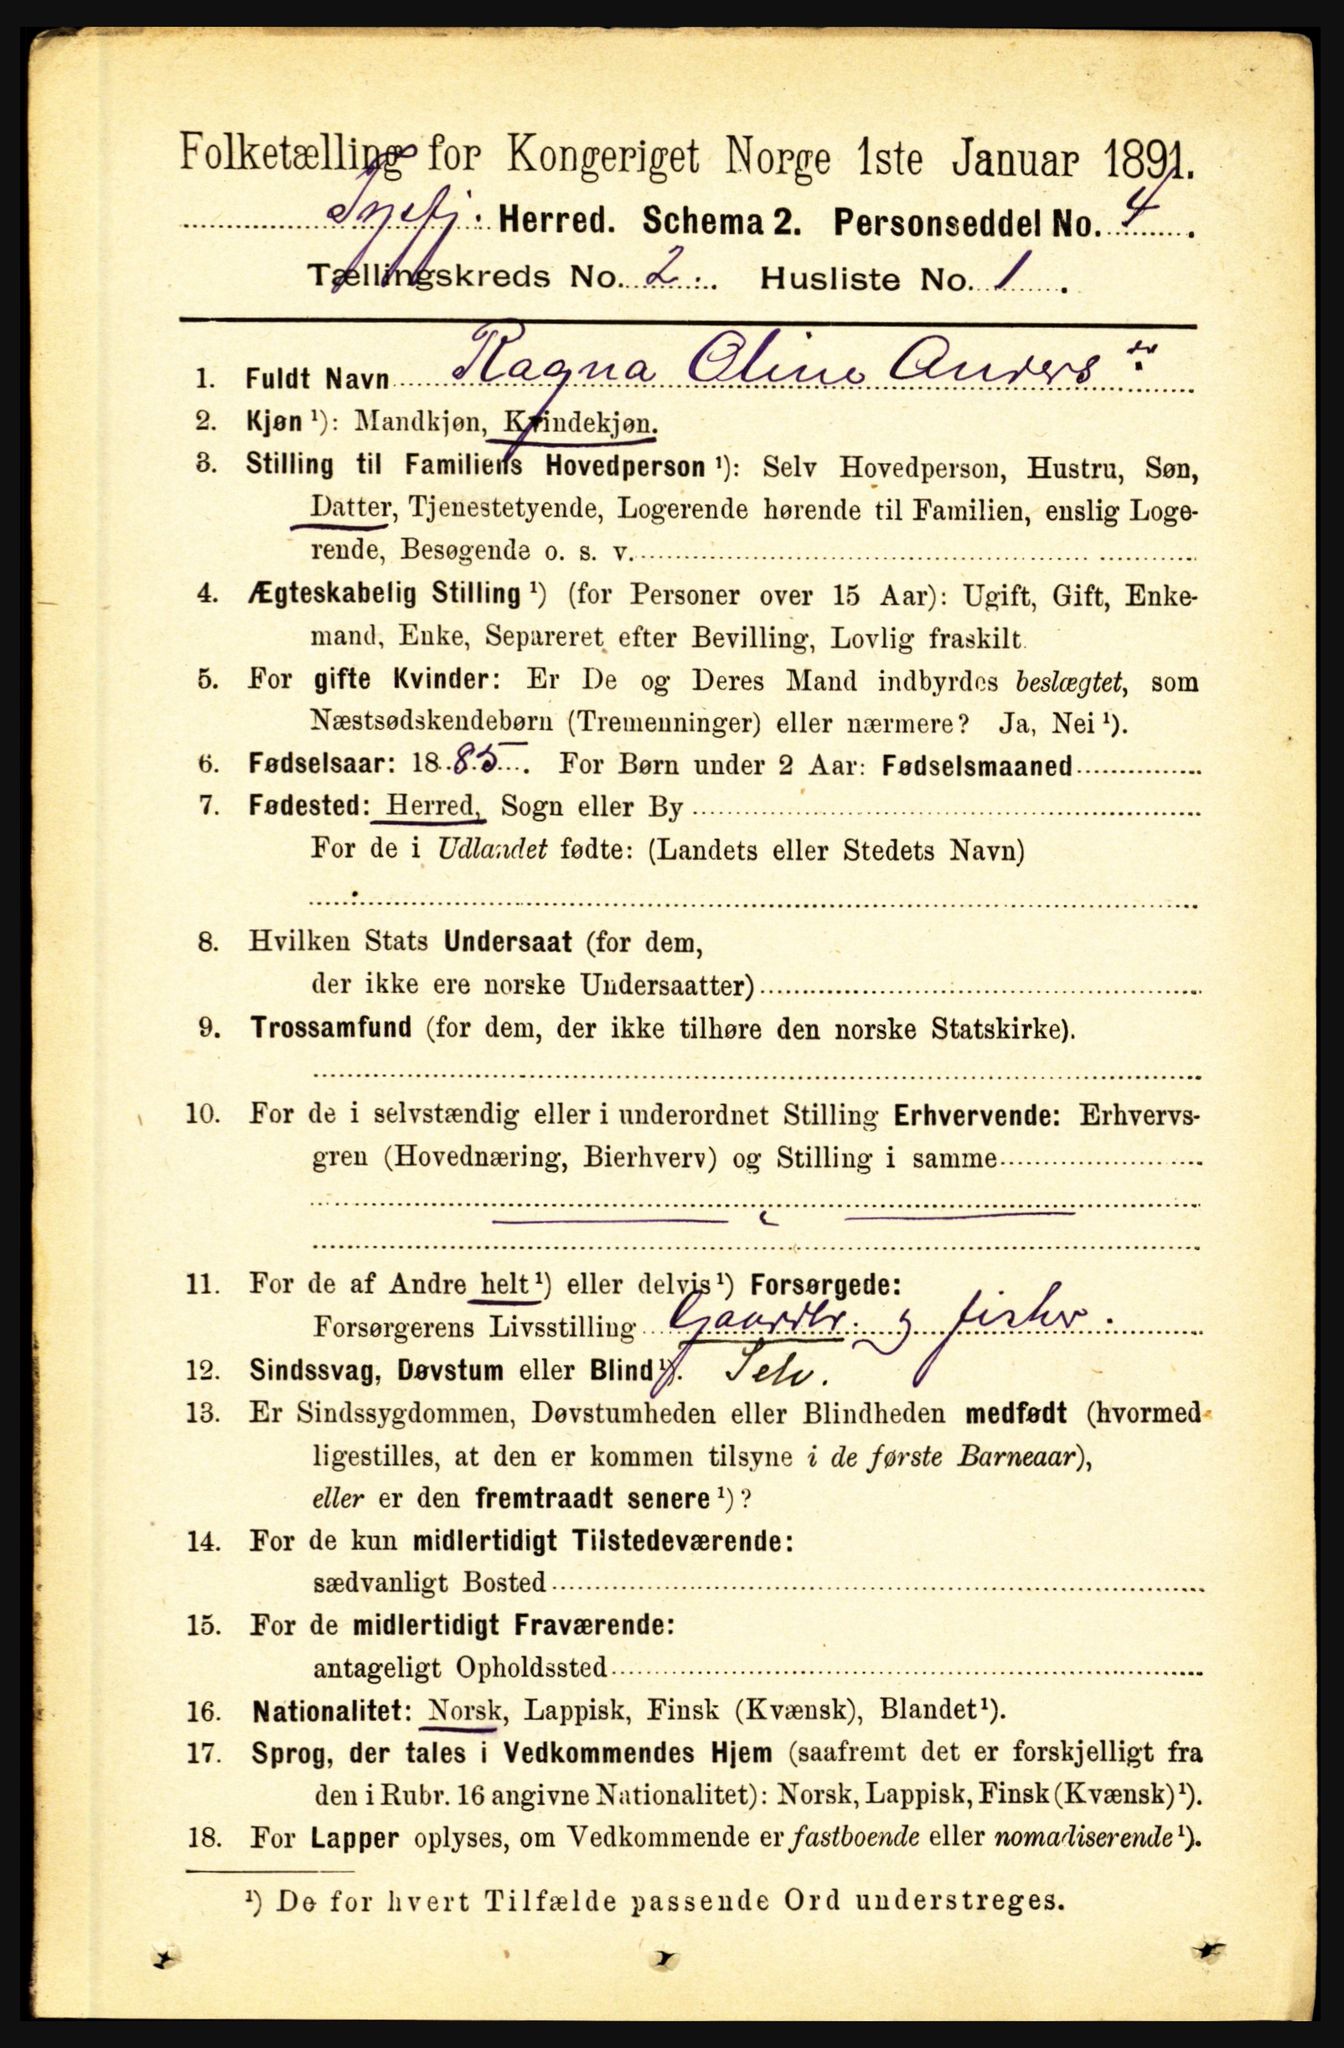 Folketælling for Kongeriget Norge 1ste Januar 1891.
Herred. Schema 2. Personseddel No. 4.
Tællingskreds No. 2. Husliste No. 1.
1. Fuldt Navn Ragna Oline Anders dr
2. Kjøn ¹): Mandkjøn, Kvindekjøn.
3. Stilling til Familiens Hovedperson ¹): Selv Hovedperson, Hustru, Søn,
Datter, Tjenestetyende, Logerende hørende til Familien, enslig Loge-
rende, Besøgende o. s. v.
4. Ægteskabelig Stilling ¹) (for Personer over 15 Aar): Ugift, Gift, Enke-
mand, Enke, Separeret efter Bevilling, Lovlig fraskilt.
5. For gifte Kvinder: Er De og Deres Mand indbyrdes beslægtet, som
Næstsødskendebørn (Tremenninger) eller nærmere? Ja, Nei ¹).
6. Fødselsaar: 1885. For Børn under 2 Aar: Fødselsmaaned
7. Fødested: Herred, Sogn eller By
For de i Udlandet fødte: (Landets eller Stedets Navn)
8. Hvilken Stats Undersaat (for dem,
der ikke ere norske Undersaatter)
9. Trossamfund (for dem, der ikke tilhøre den norske Statskirke).
10. For de i selvstændig eller i underordnet Stilling Erhvervende: Erhvervs-
gren (Hovednæring, Bierhverv) og Stilling i samme
11. For de af Andre helt ¹) eller delvis ¹) Forsørgede:
Forsørgerens Livsstilling Gaardbr. og fisker.
12. Sindssvag, Døvstum eller Blind ¹). Selv.
13. Er Sindssygdommen, Døvstumheden eller Blindheden medfødt (hvormed
ligestilles, at den er kommen tilsyne i de første Barneaar),
eller er den fremtraadt senere ¹)?
14. For de kun midlertidigt Tilstedeværende:
sædvanligt Bosted
15. For de midlertidigt Fraværende:
antageligt Opholdssted
16. Nationalitet: Norsk, Lappisk, Finsk (Kvænsk), Blandet ¹).
17. Sprog, der tales i Vedkommendes Hjem (saafremt det er forskjelligt fra
den i Rubr. 16 angivne Nationalitet): Norsk, Lappisk, Finsk (Kvænsk) ¹).
18. For Lapper oplyses, om Vedkommende er fastboende eller nomadiserende ¹).
¹) De for hvert Tilfælde passende Ord understreges.